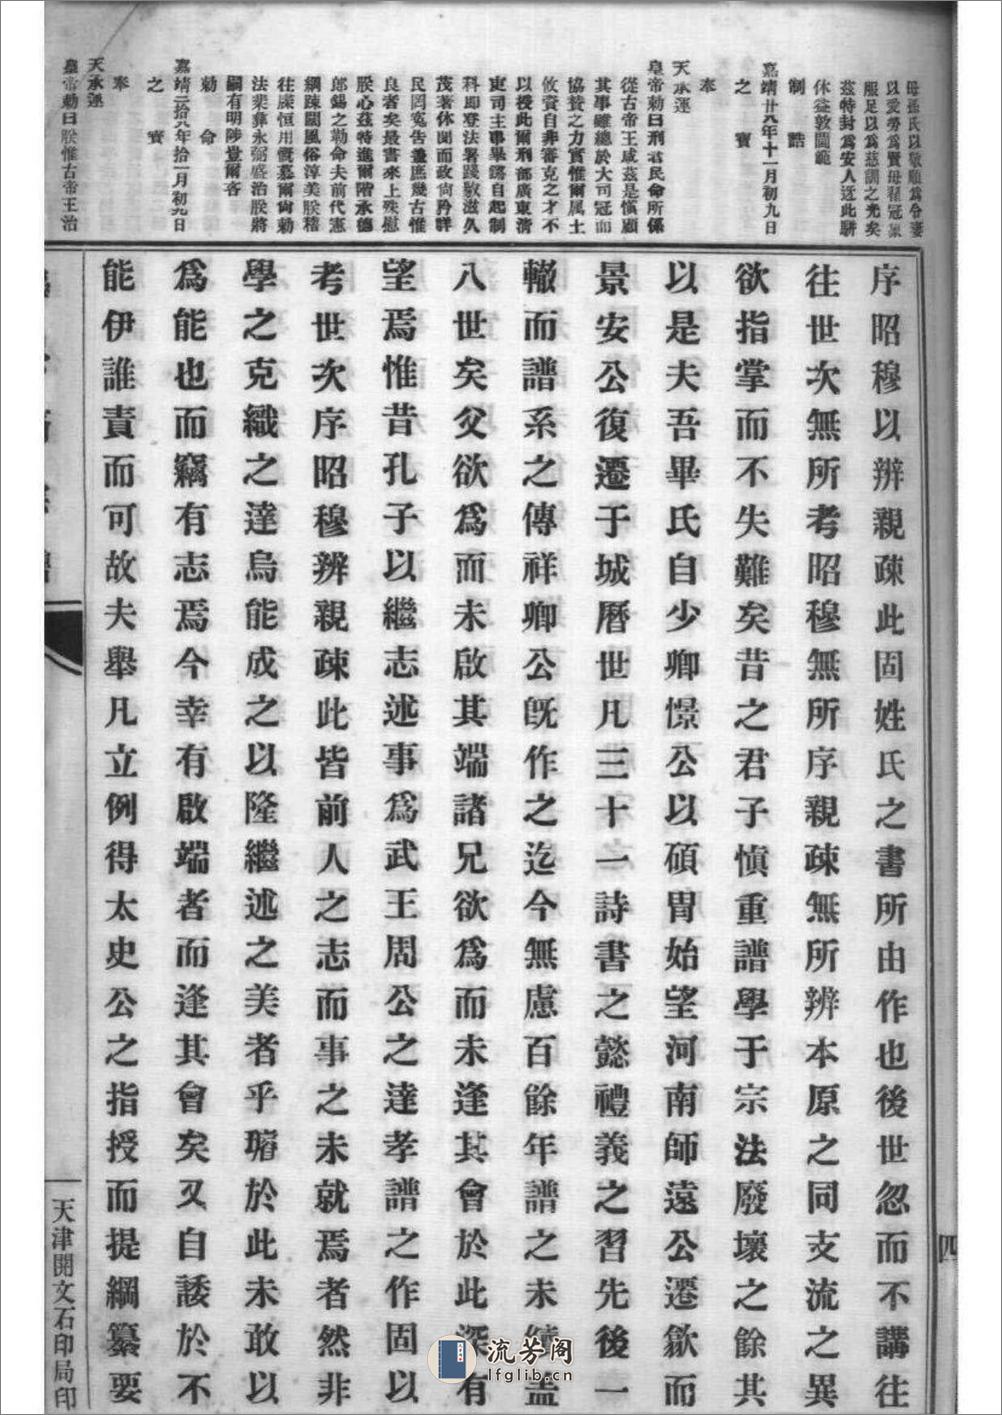 母孫氏以敬順爲令妻
以愛勞爲賢母翟冠象
服足以爲慈訓之光矣
茲特封爲安人迓此駢
休益敦閫範
制誥
嘉靖廿八年十一月初九日
之寶
奉
天承運
皇帝勅曰刑者民命所係
從古帝王咸茲是愼顧
其事雖總於大司冠而
協贊之力實惟爾属土
攸賚自非審克之才不
以授此爾刑部廣東清
吏司主事畢諮自起制
科即登法署踐敭滋久
茂著休聞而政尚矜詳
民罔寃吿盖庶幾古惟
良者矣最書來上殊慰
朕心茲特進爾階承德
郎錫之勒命夫前代憲
綱踈闊風俗淳美朕稽
往牒恒用慨慕爾尙勅
法棐彝永弼盛治朕將
嗣有明陟豈爾吝
勅命
嘉靖三拾八年拾二月初九日
之寶
奉
天承運
皇帝勅曰朕惟古帝王治
序昭穆以辨親疎此固姓氏之書所由作也後世忽而不講往
往世次無所考昭穆無所序親疎無所辨本原之同支流之異
欲指掌而不失難矣昔之君子愼重譜學于宗法廢壞之餘其
以是夫吾畢氏自少卿憬公以碩胃始望河南師遠公遷歙而
景安公復遷于城曆世凡三十一詩書之懿禮義之習先後一
轍而譜系之傳祥卿公旣作之迄今無慮百餘年譜之未續盖
八世矣父欲爲而未啟其端諸兄欲爲而未逢其會於此深有
望焉惟昔孔子以繼志述事爲武王周公之達孝譜之作固以
考世次序昭穆辨親疎此皆前人之志而事之未就焉者然非
學之克織之達烏能成之以隆繼述之美者乎璿於此未敢以
爲能也而竊有志焉今幸有啟端者而逢其會矣又自諉於不
能伊誰責而可故夫舉凡立例得太史公之指授而提綱纂要
四
天津開文石印局印
流芳阁
lfglib.cn